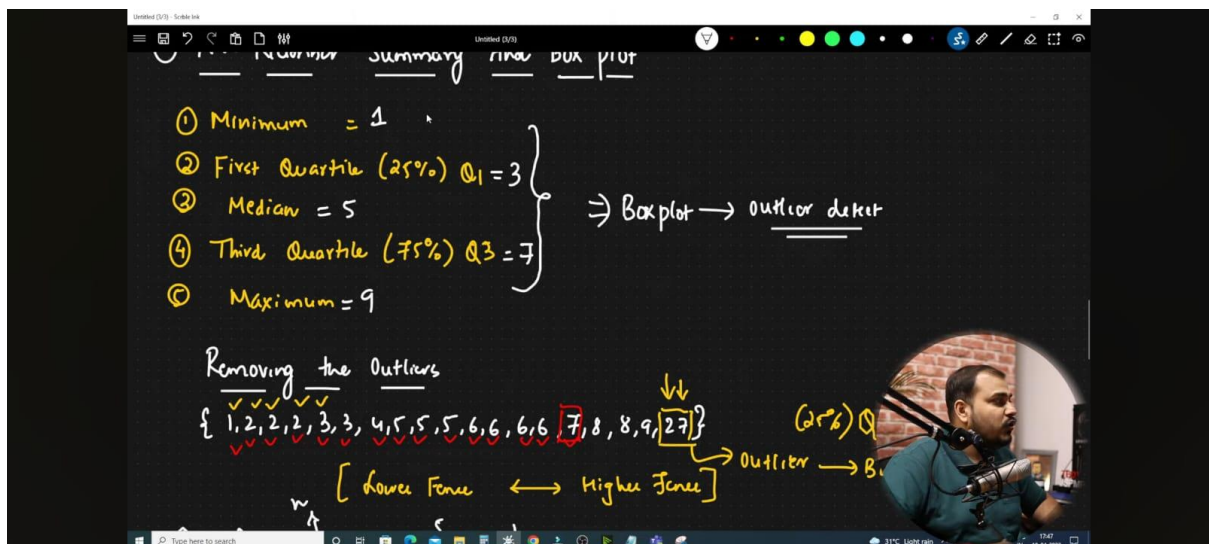 Untitled (3/3) - Scrble Ink
Untitled (3/3)
Number Summary And Box plot
① Minimum = 1
② First Quartile (25%) Q1 = 3
③ Median = 5
④ Third Quartile (75%) Q3 = 7
⑤ Maximum = 9
⇒ Boxplot → outlier detect
Removing the Outliers
{ 1, 2, 2, 2, 3, 3, 4, 5, 5, 5, 6, 6, 6, 6, 7, 8, 8, 9, 27}
(25%) Q
Outlier →
[ Lower Fence ↔ Higher Fence ]
Type here to search
31°C Light rain
17:47